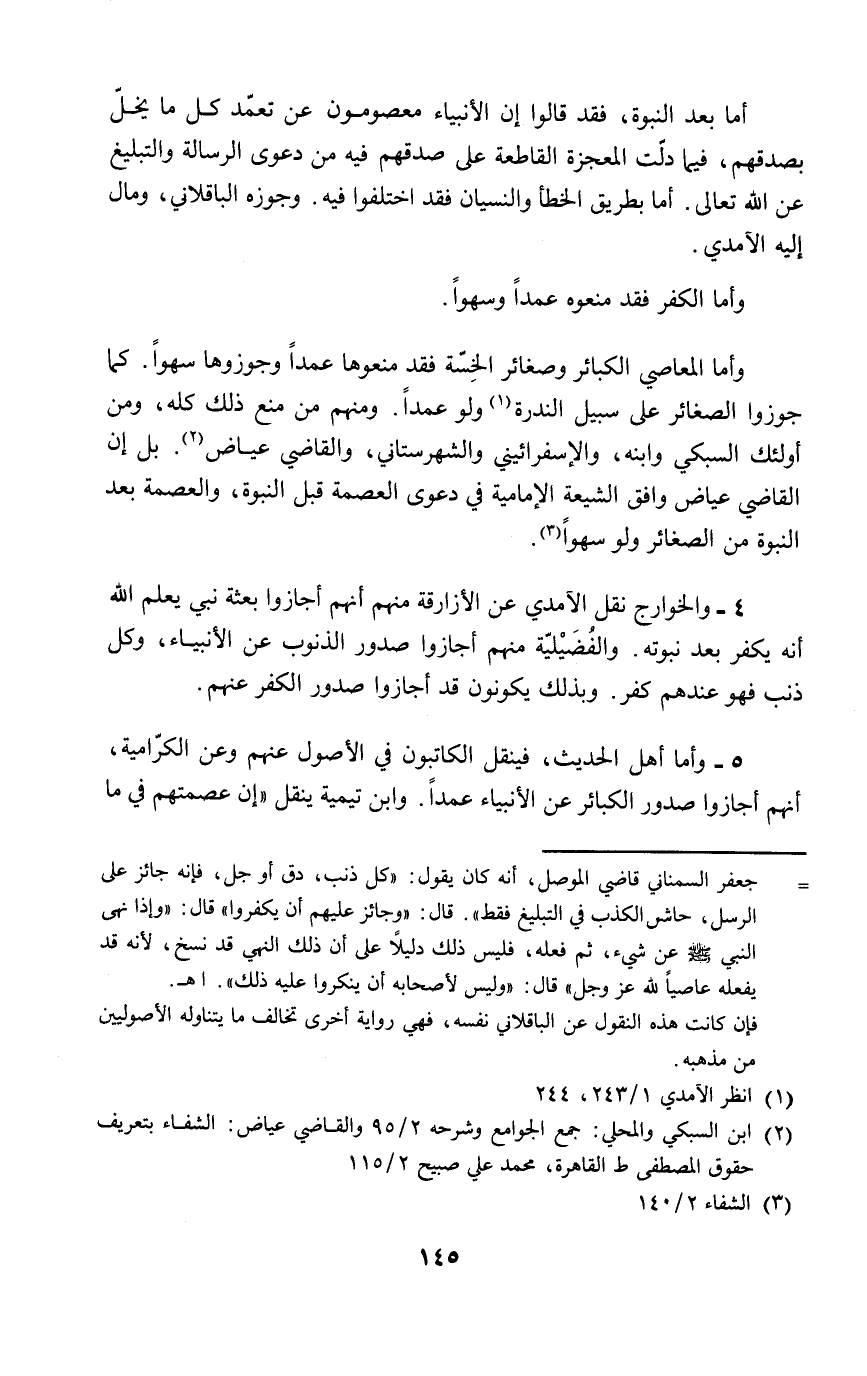 أما بعد النبوة، فقد قالوا إن الأنبياء معصومون عن تعمّد كل ما يخلّ
بصدقهم، فيما دلّت المعجزة القاطعة على صدقهم فيه من دعوى الرسالة والتبليغ
عن الله تعالى. أما بطريق الخطأ والنسيان فقد اختلفوا فيه. وجوزه الباقلاني، ومال
إليه الآمدي.
وأما الكفر فقد منعوه عمداً وسهواً.
وأما المعاصي الكبائر وصغائر الخِسّة فقد منعوها عمداً وجوزوها سهواً. كما
جوزوا الصغائر على سبيل الندرة(١) ولو عمداً. ومنهم من منع ذلك كله، ومن
أولئك السبكي وابنه، والإسفرائيني والشهرستاني، والقاضي عياض(٢). بل إن
القاضي عياض وافق الشيعة الإمامية في دعوى العصمة قبل النبوة، والعصمة بعد
النبوة من الصغائر ولو سهواً(٣).
٤ ـ والخوارج نقل الآمدي عن الأزارقة منهم أنهم أجازوا بعثة نبي يعلم الله
أنه يكفر بعد نبوته. والفُضَيْليّة منهم أجازوا صدور الذنوب عن الأنبياء، وكل
ذنب فهو عندهم كفر. وبذلك يكونون قد أجازوا صدور الكفر عنهم.
٥ ـ وأما أهل الحديث، فينقل الكاتبون في الأصول عنهم وعن الكرّامية،
أنهم أجازوا صدور الكبائر عن الأنبياء عمداً. وابن تيمية ينقل «إن عصمتهم في ما
= جعفر السمناني قاضي الموصل، أنه كان يقول: «كل ذنب، دق أو جل، فإنه جائز على
الرسل، حاش الكذب في التبليغ فقط». قال: «وجائز عليهم أن يكفروا» قال: «وإذا نهى
النبي ﷺ عن شيء، ثم فعله، فليس ذلك دليلاً على أن ذلك النهي قد نسخ، لأنه قد
يفعله عاصياً لله عز وجل» قال: «وليس لأصحابه أن ينكروا عليه ذلك». ا هـ.
فإن كانت هذه النقول عن الباقلاني نفسه، فهي رواية أخرى تخالف ما يتناوله الأصوليين
من مذهبه.
(١) انظر الآمدي ٢٤٣/١، ٢٤٤
(٢) ابن السبكي والمحلي: جمع الجوامع وشرحه ٩٥/٢ والقاضي عياض: الشفاء بتعريف
حقوق المصطفى ط القاهرة، محمد علي صبيح ١١٥/٢
(٣) الشفاء ١٤٠/٢
١٤٥